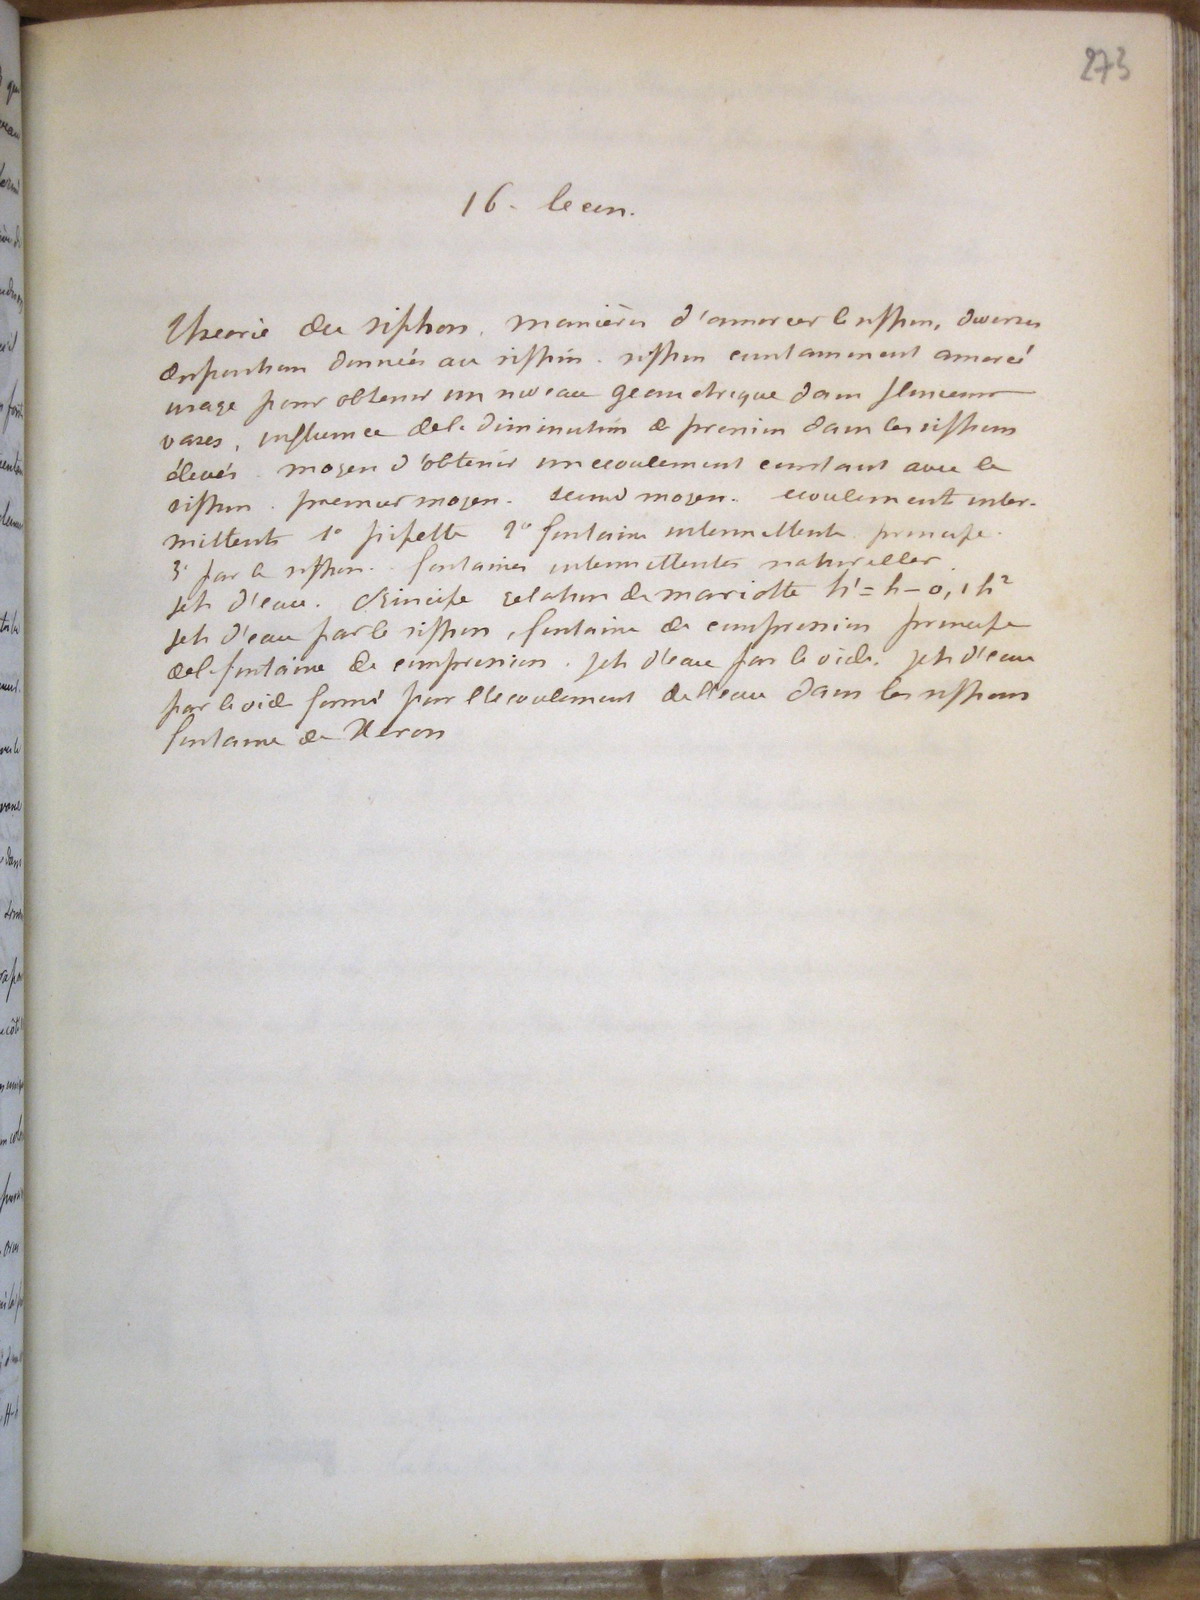 273
16. lecon.
Theorie du siphon. manières d'amorcer le siphon, diverses
disposition données au siphon. siphon constamment amorcé
usage pour obtenir un niveau geometrique dans plusieurs
vases, influence de la diminution de pression dans les siphons
élevés. moyen d'obtenir un ecoulement constant avec le
siphon. premier moyen. second moyen. ecoulement inter-
mittents 1° pipette 2° fontaine intermittente principe.
3° par le siphon. fontaines intermittentes naturelles.
jets d'eau. Principe relation de mariotte h' = h – 0,1 h²
jets d'eau par le siphon, fontaine de compression principe
de la fontaine de compression. jets d'eau par le vide. jets d'eau
par le vide formé par l'ecoulement de l'eau dans les siphons
fontaine de Heron